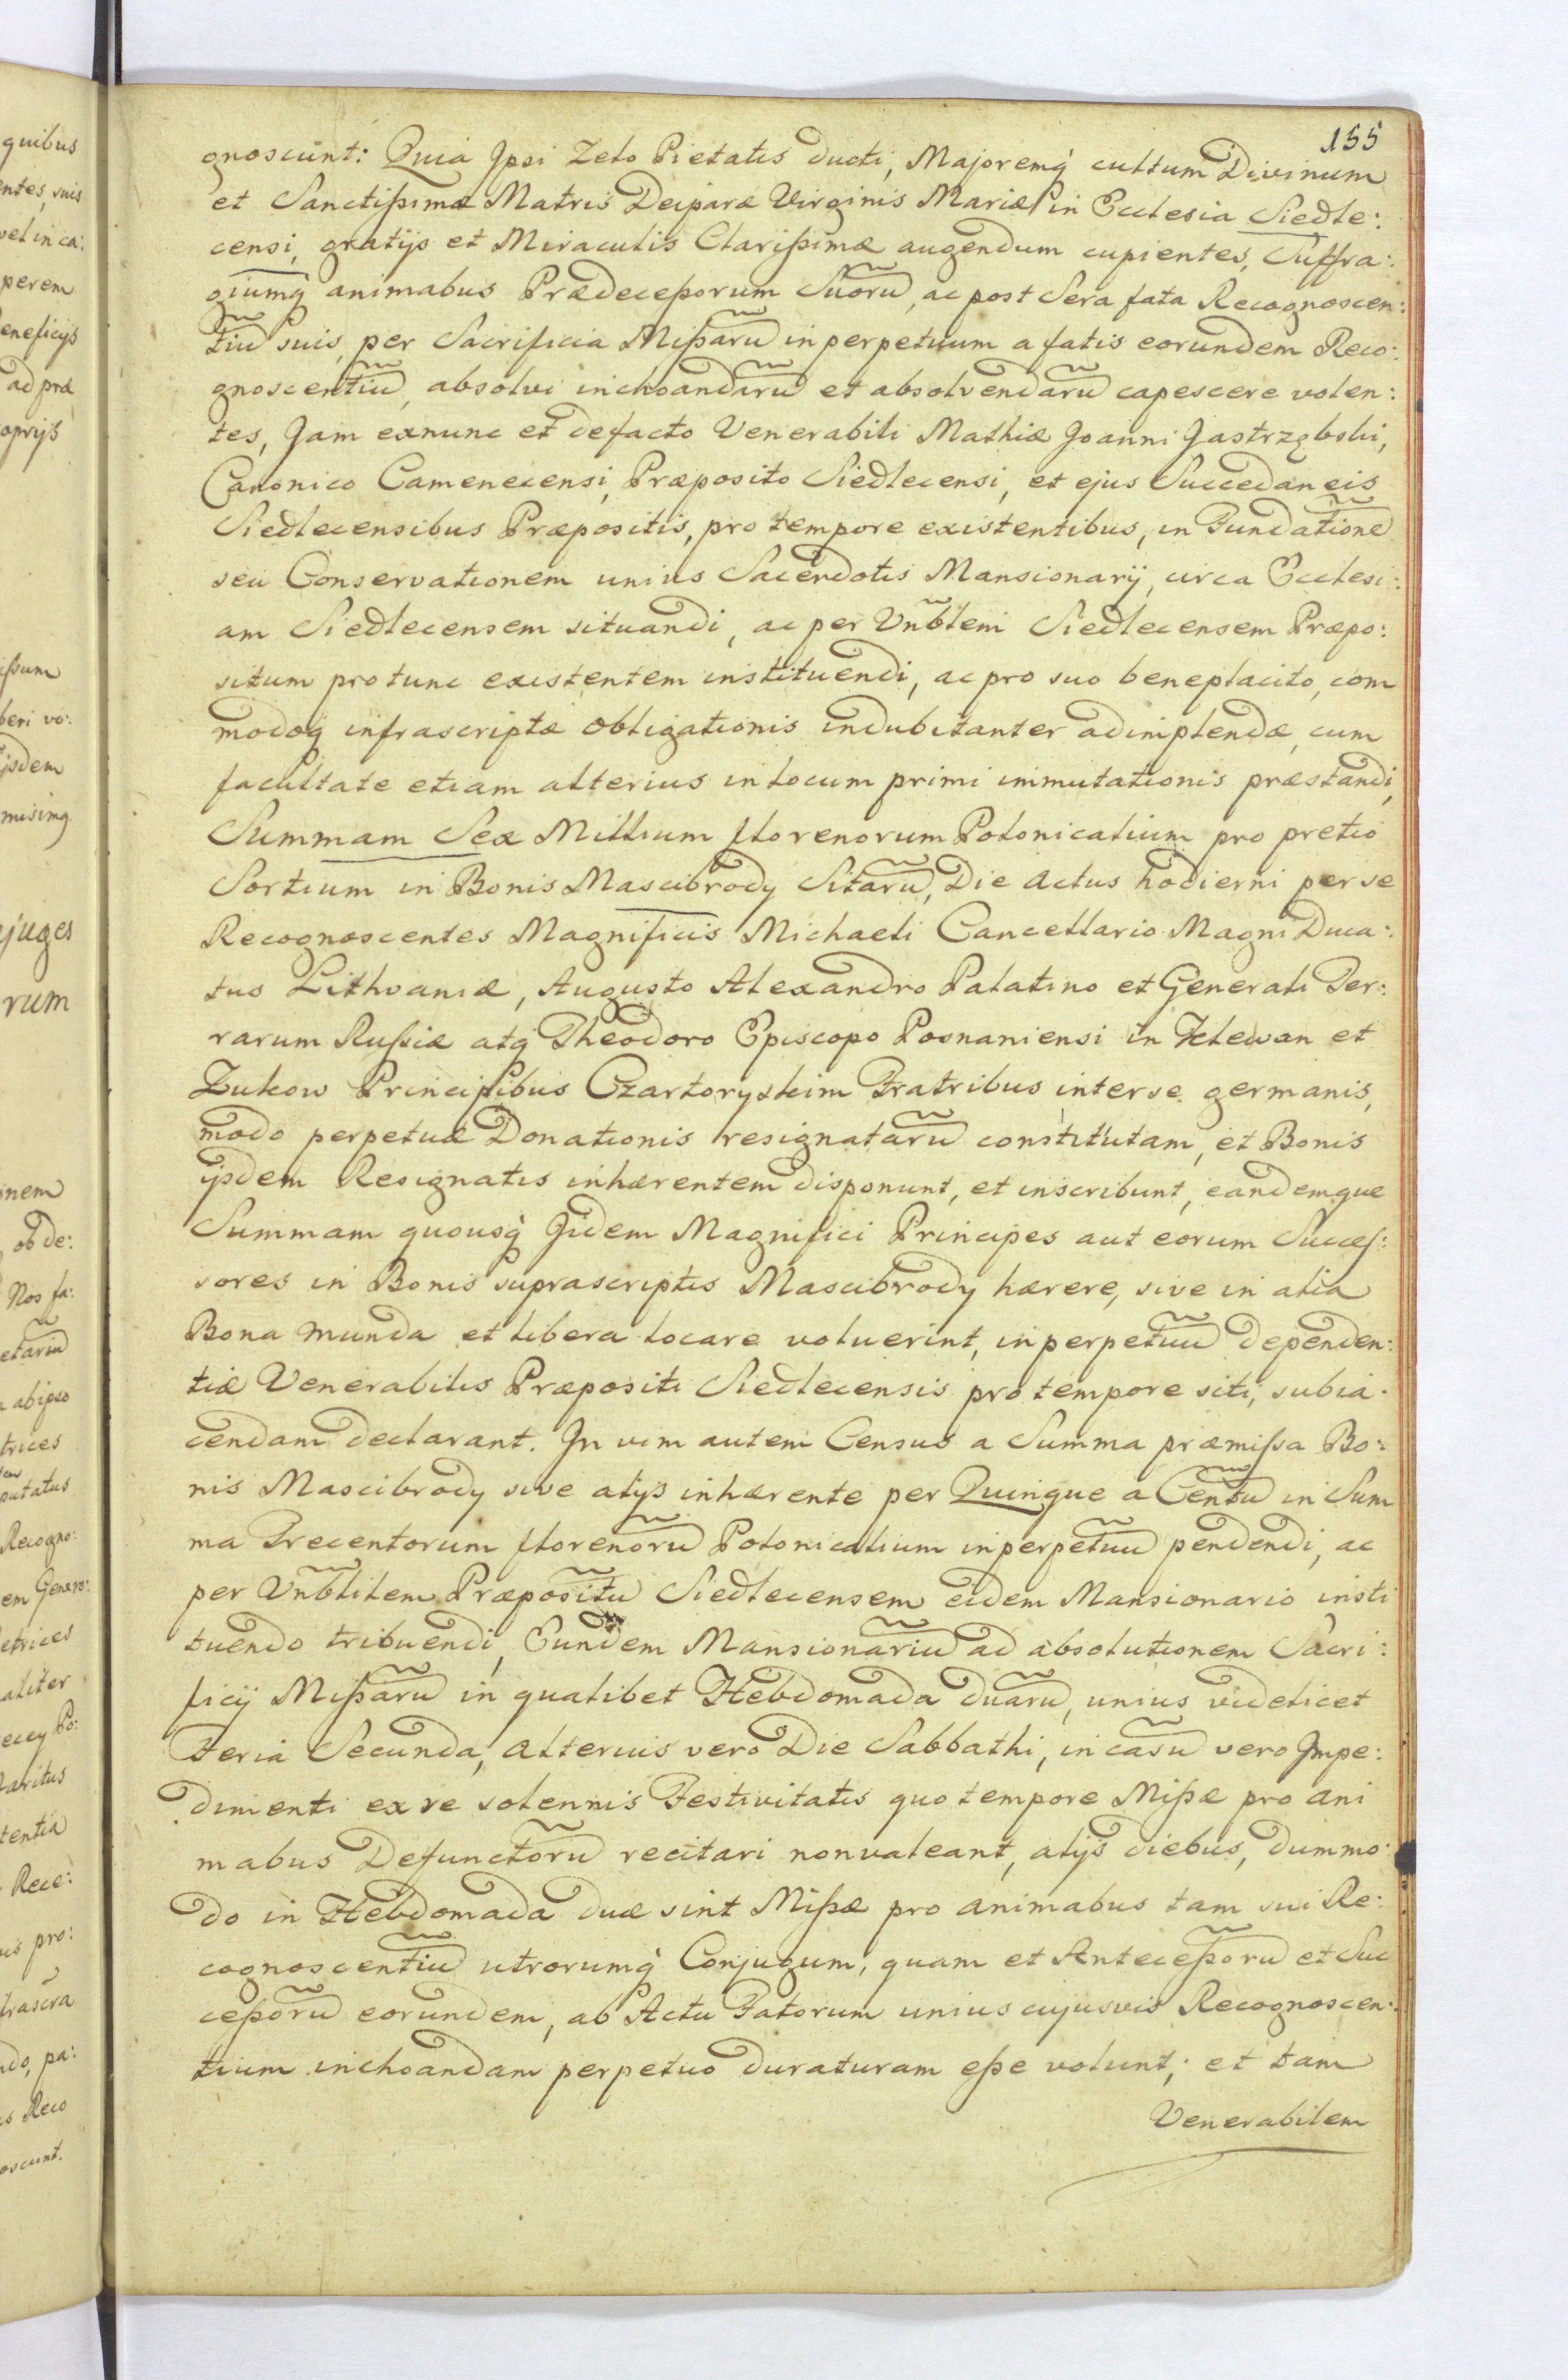 155
gnoscunt: Quia Jpsi Zelo Pietatis ducti, Majoremq́ cultum Divinum
et Sanctißimæ Matris Deiparæ Virginis Mariæ in Ecclesia Siedle:
censi, gratijs et Miraculis Clarißimæ augendum cupientes, Suffra:
giumq́ animabus Prædeceßorum Suorũ, ac post Sera fata Recognoscen:
tiũ suis, per Sacrificia Mißarũ in perpetuum a fatis eorundem Reco:
gnoscentiũ, absolvi inchoandarũ et absolvendarũ capescere volen:
tes, Jam exnunc et defacto Venerabili Mathiæ Joanni Jastrzębski,
Canonico Camenecensi, Præposito Siedlecensi, et ejus Succedaneis
Siedlecensibus Præpositis, pro tempore existentibus, in Fundatione
seu Conservationem unius Sacerdotis Mansionarij, circa Ecclesi:
am Siedlecensem situandi, ac per Vñblem Siedlecensem Præpo:
situm pro tunc existentem instituendi, ac pro suo beneplacito, com
modoq́ infrascriptæ obligationis indubitanter adimplendæ, cum
facultate etiam alterius in locum primi immutationis præstandi,
Summam Sex Millium florenorum Polonicalium pro pretio
Sortium in Bonis Mascibrody Sitarũ, Die Actus hodierni per se
Recognoscentes Magnificis Michaeli Cancellario Magni Duca:
tus Lithvaniæ, Augusto Alexandro Palatino et Generali Ter:
rarum Rußiæ atq́ Theodoro Episcopo Posnaniensi in Klewan et
Zukow Principibus Czartoryskim Fratribus inter se germanis,
modo perpetuæ Donationis resignatarũ constitutam, et Bonis
ijsdem Resignatis inhærentem disponunt, et inscribunt, eandemque
Summam quousq́ Jidem Magnifici Principes aut eorum Succes:
sores in Bonis suprascriptis Mascibrody hærere, sive in alia
Bona munda et libera locare voluerint, in perpetuũ dependen:
tiæ Venerabilis Præpositi Siedlecensis pro tempore siti, subia:
cendam declarant. Jn vim autem Census a Summa præmissa Bo:
nis Mascibrody sive alijs inhærente per Quinque a Centũ in Sum
ma Trecentorum florenorũ Polonicalium in perpetuũ pendendi, ac
per Vñblilem Præpositũ Siedlecensem eidem Mansionario insti
tuendo tribuendi, Eundem Mansionariũ ad absolutionem Sacri:
ficij Mißarũ in qualibet Hebdomada duarũ, unius videlicet
Feria Secunda, alterius vero Die Sabbathi, in casũ vero Jmpe:
dimenti ex re solennis Festivitatis quo tempore Mißæ pro ani
mabus Defunctorũ recitari non valeant, alijs diebus, dummo:
do in Hebdomada duæ sint Mißæ pro animabus tam sui Re:
cognoscentiũ utrorumq́ Conjugum, quam et Anteceßorũ et Suc
ceßorũ eorundem, ab Actu Fatorum unius cujusvis Recognoscen:
tium inchoandam perpetuo duraturam eße volunt; et tam
Venerabilem